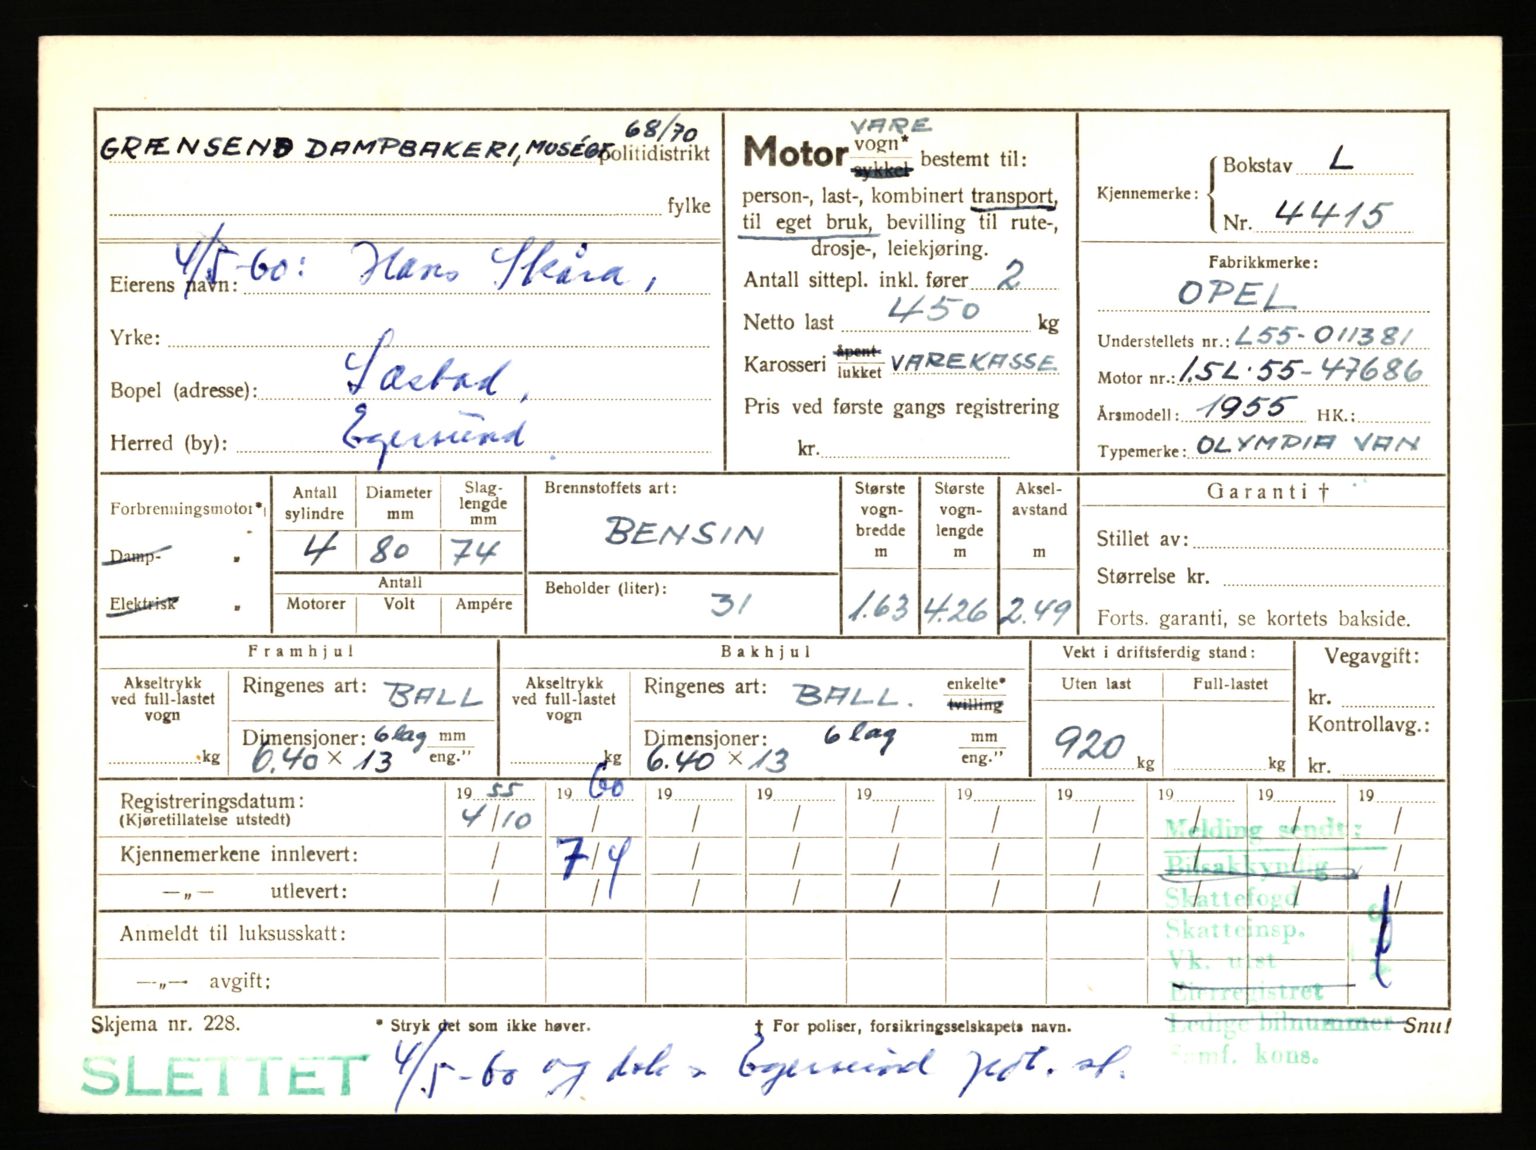 GRÆNSEND DAMPBAKERI, MUSÉGT. 68/70
politidistrikt
fylke
4/5-60: Hans Skåra,
Eierens navn:
Yrke:
Bopel (adresse): Læsbad,
Herred (by): Egersund
Motor VARE vogn* sykkel bestemt til:
person-, last-, kombinert transport,
til eget bruk, bevilling til rute-,
drosje-, leiekjøring.
Antall sittepl. inkl. fører 2
Netto last 450 kg
Karosseri åpent lukket VAREKASSE
Pris ved første gangs registrering
kr.
Kjennemerke: Bokstav L
Nr. 4415
Fabrikkmerke:
OPEL
Understellets nr.: L55-011381
Motor nr.: 1.5L·55-47686
Årsmodell: 1955 HK.:
Typemerke: OLYMPIA VAN
Forbrenningsmotor*
Damp- "
Elektrisk "
Antall sylindre 4
Diameter mm 80
Slag-lengde mm 74
Antall
Motorer Volt Ampére
Brennstoffets art:
BENSIN
Beholder (liter): 31
Største vogn-bredde m 1.63
Største vogn-lengde m 4.26
Aksel-avstand m 2.49
Garanti †
Stillet av:
Størrelse kr.
Forts. garanti, se kortets bakside.
Framhjul
Akseltrykk ved full-lastet vogn
kg
Ringenes art: BALL
Dimensjoner: 6 lag mm
6.40 × 13 eng."
Bakhjul
Akseltrykk ved full-lastet vogn
kg
Ringenes art: BALL. enkelte* tvilling
Dimensjoner: 6 lag mm
6.40 × 13 eng."
Vekt i driftsferdig stand:
Uten last Full-lastet
920 kg kg
Vegavgift:
kr.
Kontrollavg.:
kr.
Registreringsdatum: 19 55 19 60 19 19 19 19 19 19 19 19
(Kjøretillatelse utstedt) 4/10 / / / / / / / / /
Kjennemerkene innlevert: / 7/4 / / / / / / / /
—„— utlevert: / / / / / / / / / /
Anmeldt til luksusskatt:
—„— avgift:
Melding sendt:
Bilsakkyndig
Skattefogd
Skatteinsp.
Vk. utst
Eierregistret
Ledige bilnummer
Samf. kons.
Skjema nr. 228.
* Stryk det som ikke høver.
† For poliser, forsikringsselskapets navn.
Snu!
SLETTET 4/5-60 og dok Egersund pdt. st.